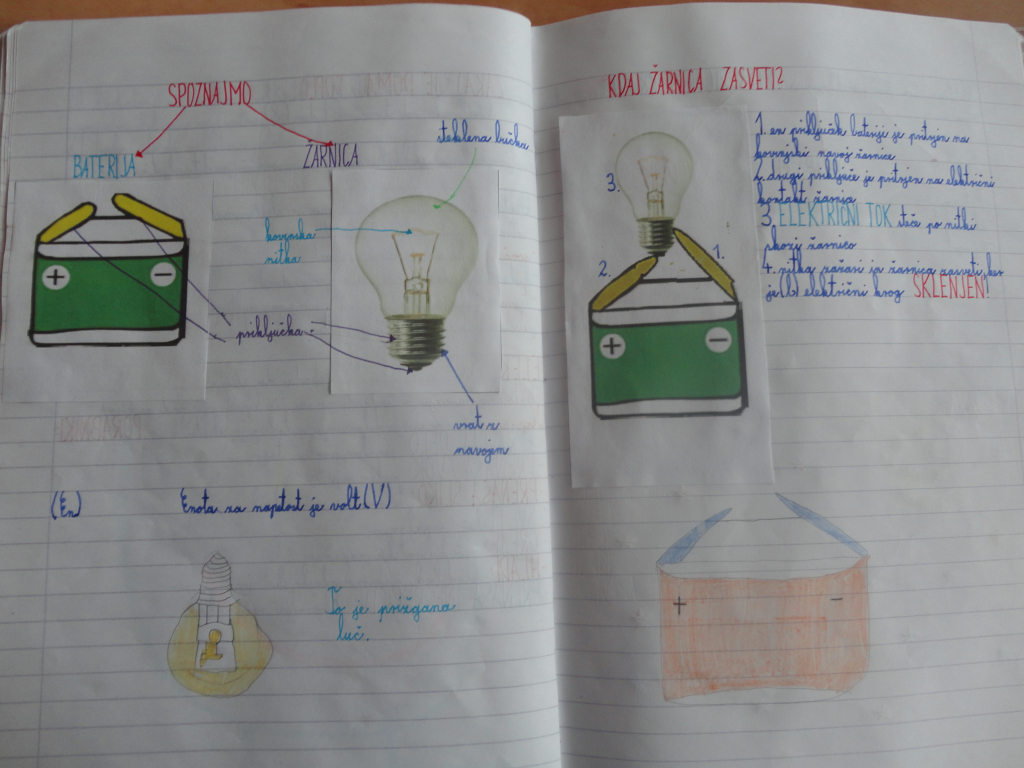 SPOZNAJMO
BATERIJA
ŽARNICA
steklena bučka
kovinska
nitka
+
−
priključka
vrat z
navojem
(En)
Enota za napetost je volt (V)
To je prižgana
luč.
KDAJ ŽARNICA ZASVETI?
1. en priključek baterije je pritrjen na
kovinski navoj žarnice
2. drugi priključe je pritrjen na električni
kontakt
3. ELEKTRIČNI TOK teče po nitki
skozi žarnico
4. nitka zažari in žarnica zasveti ker
je električni krog SKLENJEN!
3.
2.
1.
+
−
+
−